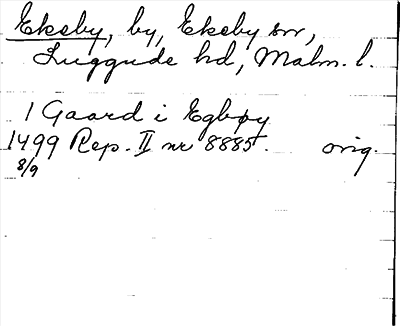 Ekeby, by, Ekeby sn,
Luggude hd, Malm. l.
1 Gaard i Egbøy
1499 Rep. II nr 8885. orig.
8/9